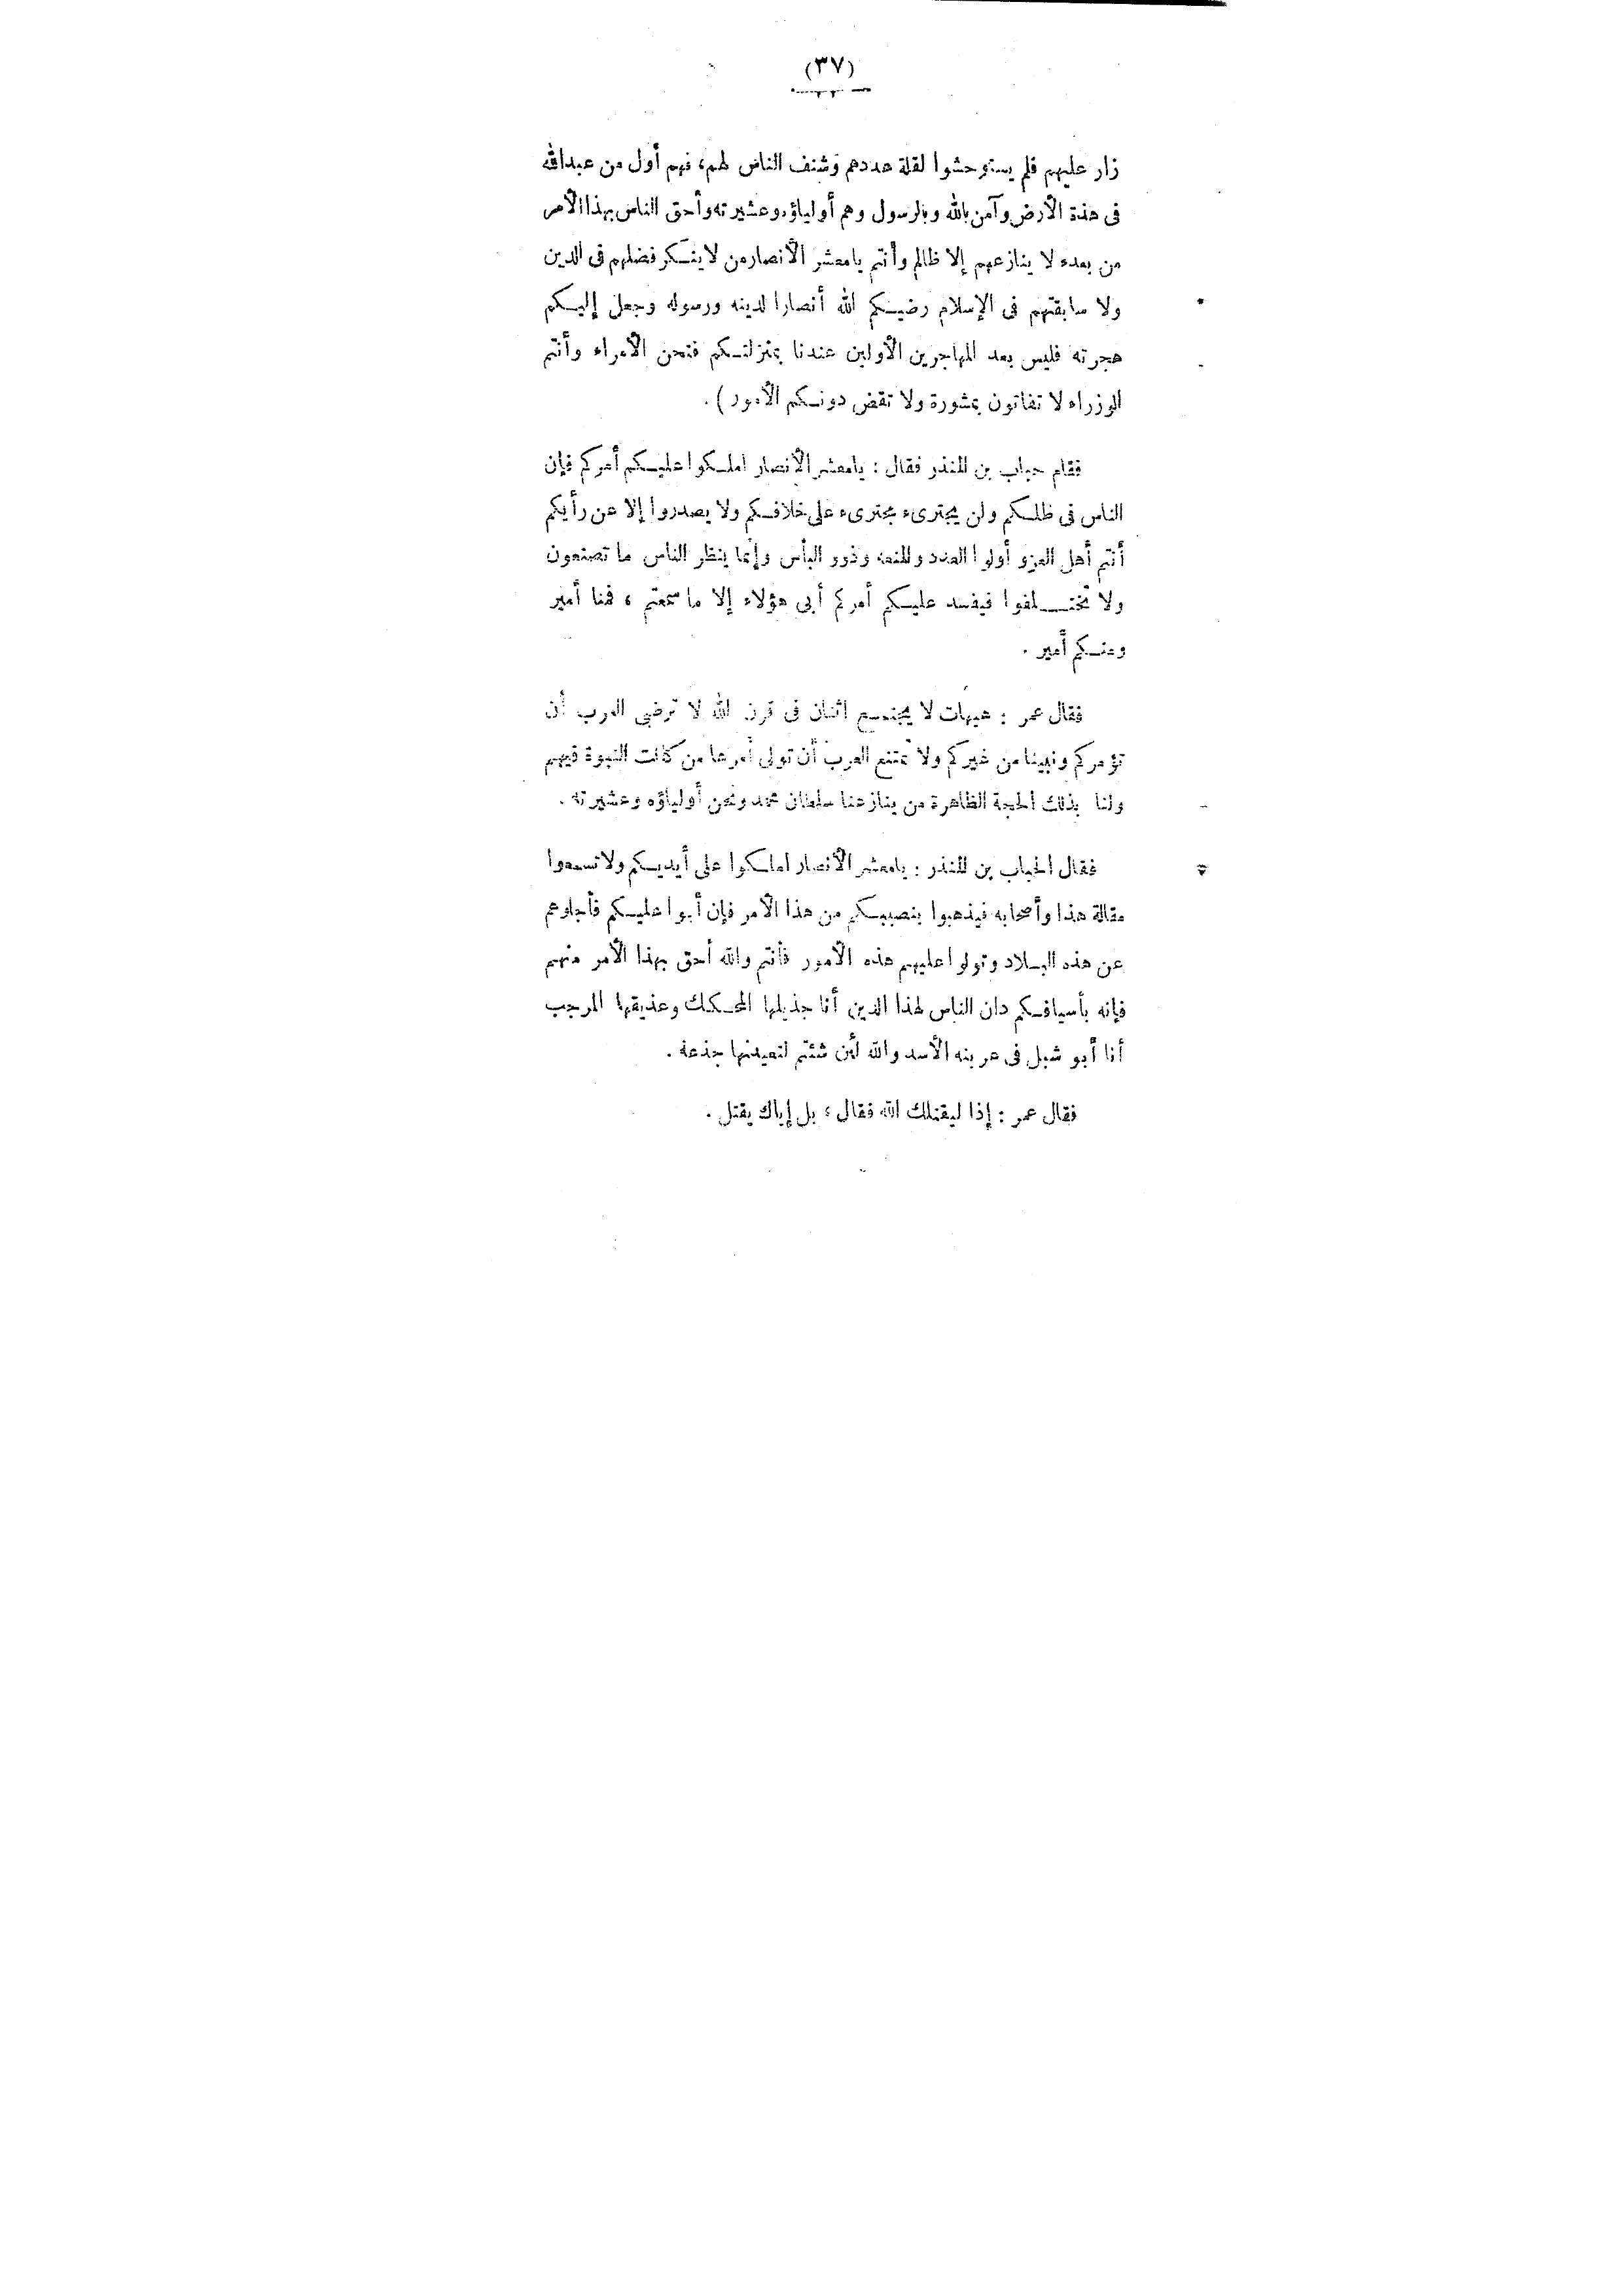 (٣٧)
زار عليهم فلم يستوحشوا لقلة عددهم وشنف الناس لهم، فهم أول من عبدالله
فى هذة الأرض وآمن بالله وبالرسول وهم أولياؤه وعشيرته وأحق الناس بهذا الأمر
من بعده لا ينازعهم إلا ظالم وأنتم يامعشر الأنصار من لا ينكر فضلهم فى الدين
ولا سابقتهم فى الإسلام رضيكم الله أنصارا لدينه ورسوله وجعل إليكم
هجرته فليس بعد المهاجرين الأولين عندنا بمنزلتكم فنحن الأمراء وأنتم
الوزراء لا تفاتون بمشورة ولا تقض دونكم الأمور ) .
فقام حباب بن المنذر فقال : يامعشر الأنصار املكوا عليكم أمركم فإن
الناس فى ظلكم ولن يجترىء مجترىء على خلافكم ولا يصدروا إلا عن رأيكم
أنتم أهل العزو أولوا العدد والمنعه وذوو البأس وإنما ينظر الناس ما تصنعون
ولا تختلفوا فيفسد عليكم أمركم أبى هؤلاء إلا ما سمعتم ، فمنا أمير
ومنكم أمير .
فقال عمر : هيهات لا يجتمع اثنان فى قرن الله لا ترضى العرب أن
تؤمركم ونبينا من غيركم ولا تمتنع العرب أن تولى أمرها من كانت النبوة فيهم
ولنا بذلك الحجة الظاهرة من ينازعنا سلطان محمد ونحن أولياؤه وعشيرته .
فقال الحباب بن المنذر : يامعشر الأنصار املكوا على أيديكم ولا تسمعوا
مقالة هذا وأصحابه فيذهبوا بنصيبكم من هذا الأمر فإن أبوا عليكم فأجلوهم
عن هذه البلاد وتولوا عليهم هذه الأمور فأنتم والله أحق بهذا الأمر منهم
فإنه بأسيافكم دان الناس لهذا الدين أنا جذيلها المحكك وعذيقها المرجب
أنا أبو شبل فى عرينه الأسد والله لئن شئتم لنعيدنها جذعة .
فقال عمر : إذا ليقتلك الله فقال : بل إياك يقتل .